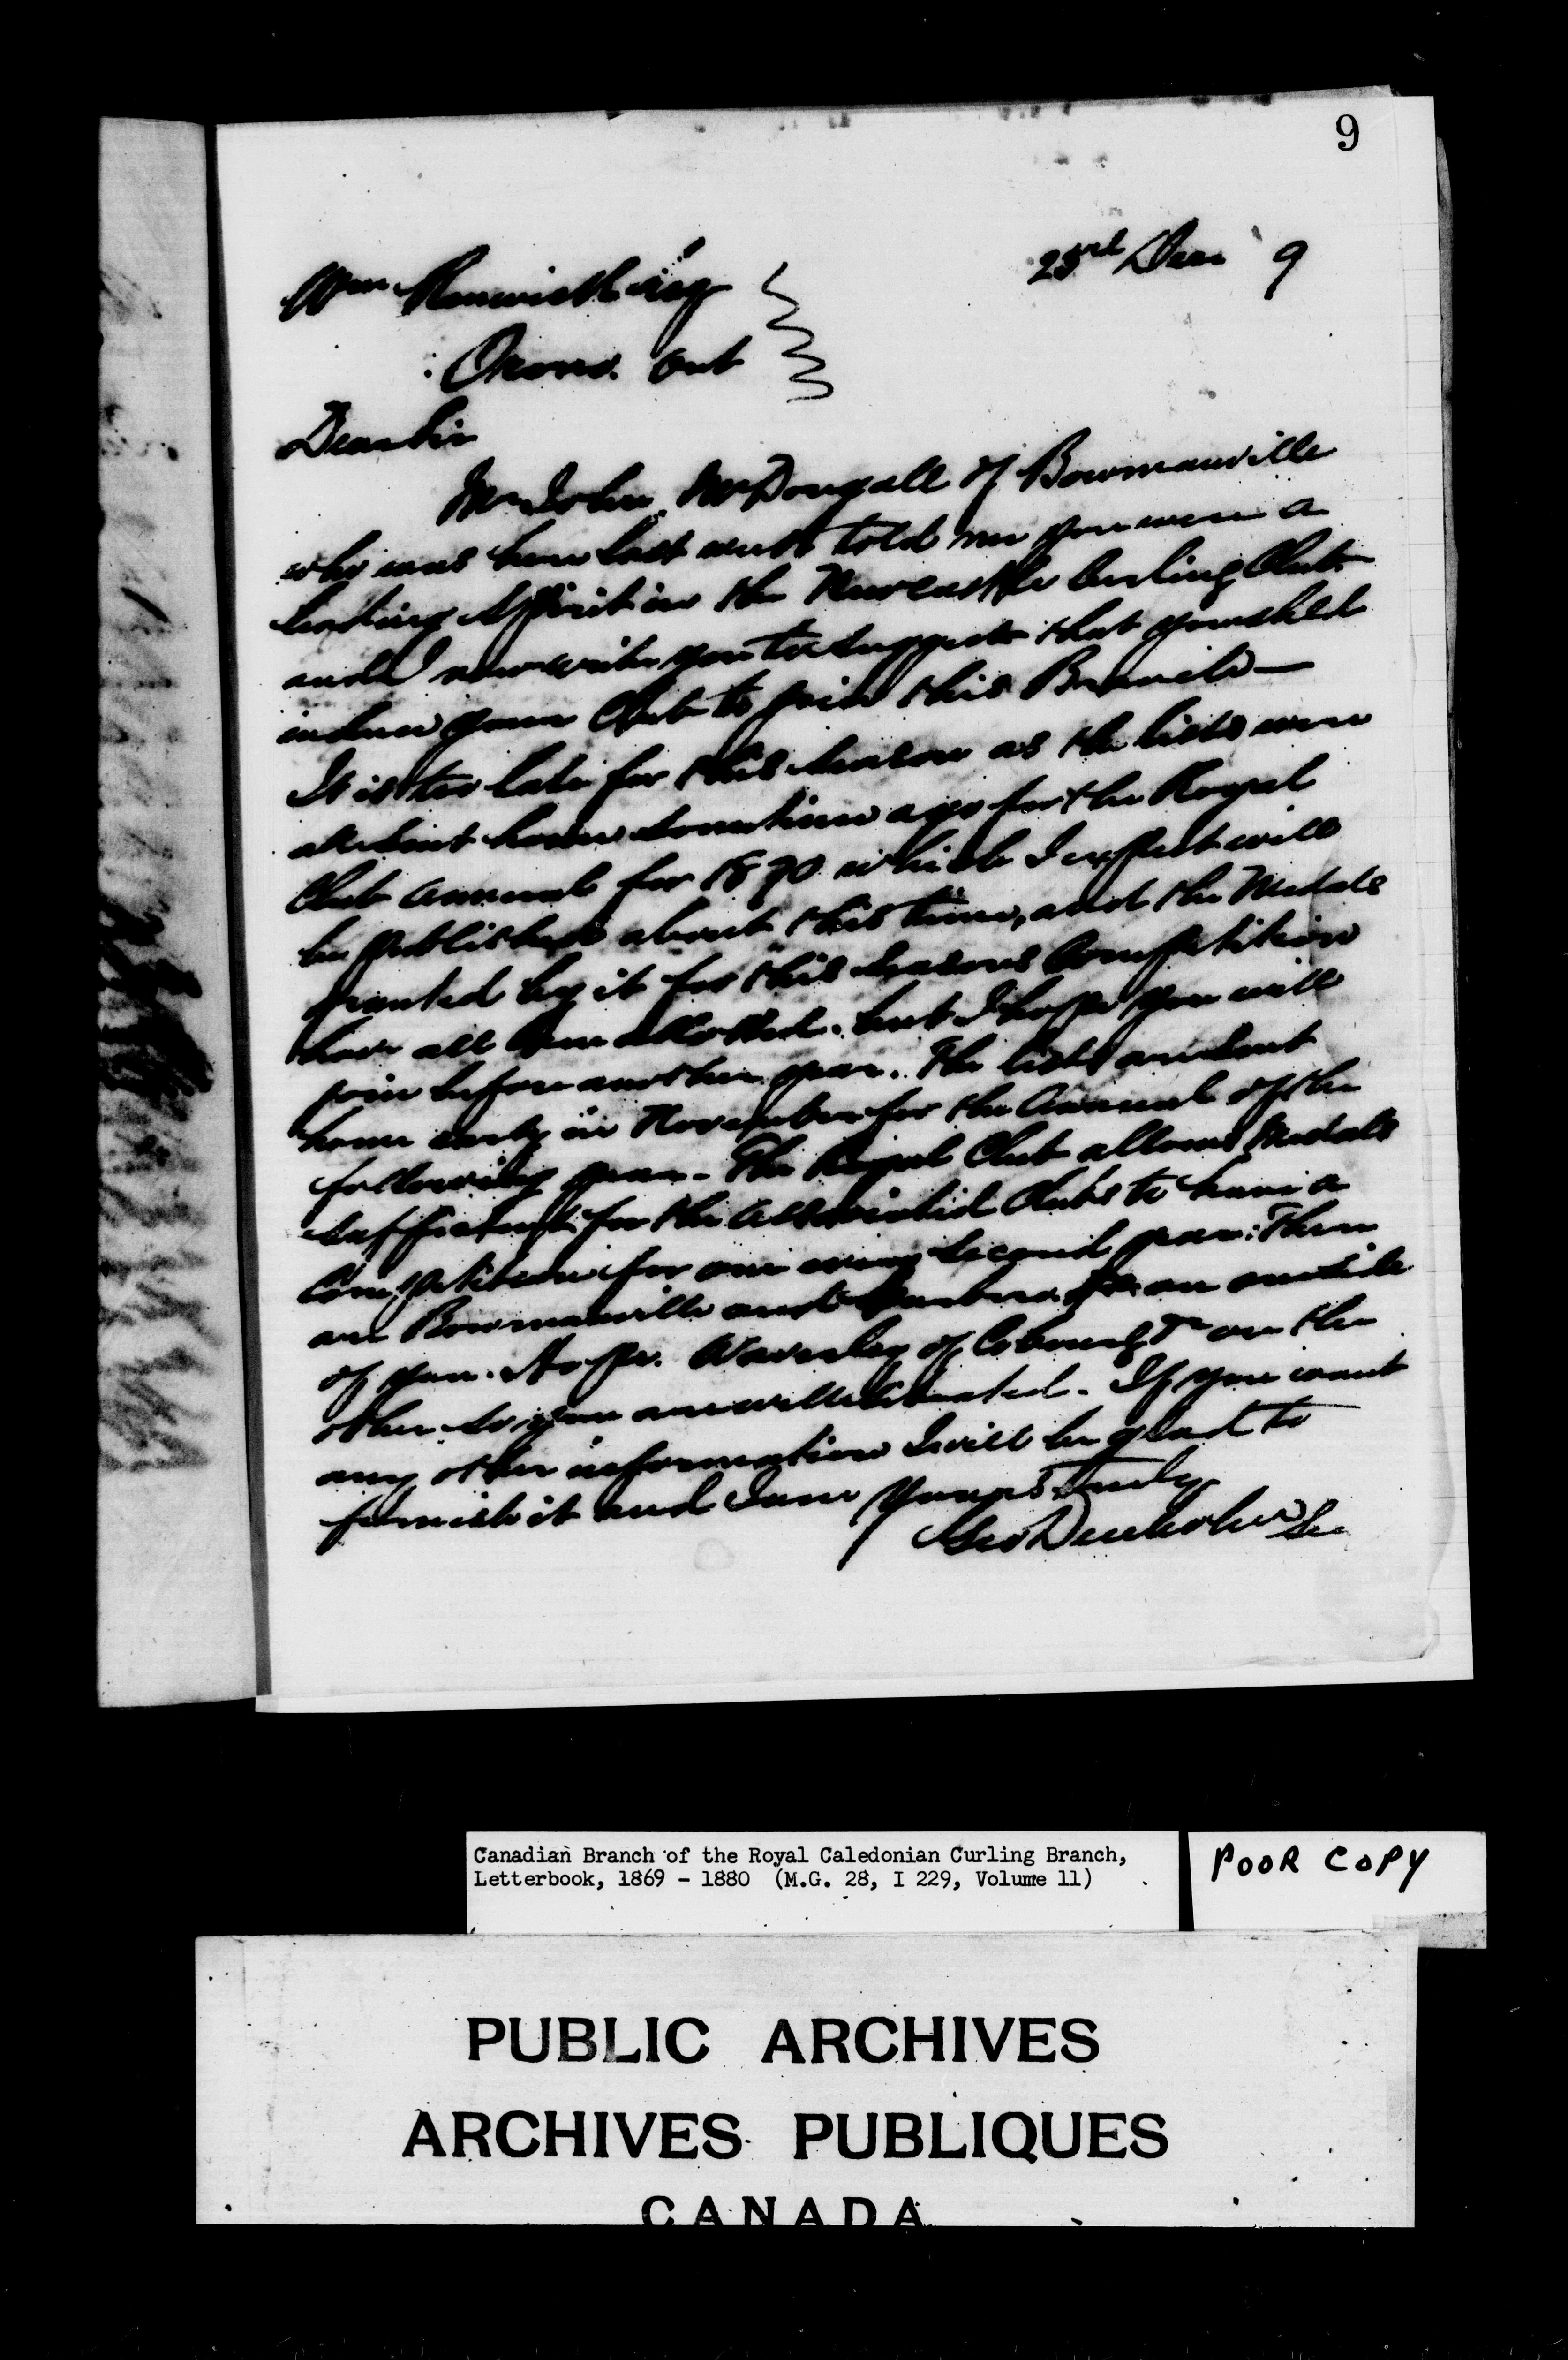 9
23rd Decr 9
Wm Renwick Esq
Orono. Ont
Dear Sir
Mr John McDougall of Bowmanville
who was here last week told me you were a
leading Spirit in the Newcastle Curling Club
and I now write you to suggest that you shld
induce your Club to join this Branch —
It is too late for this season as the lists were
all sent home sometime ago for the Royal
Club Annual for 1870 which I expect will
be published about this time, and the Medals
granted by it for this seasons Competition
have all been allotted. but I hope you will
join before another year. The lists are sent
home early in November for the Annual of the
following year. The Royal Club allows Medals
sufficient for the associated Clubs to have a
Competition for one every second year: There
are Bowmanville and on one side
of you. Hope. Waverley of Cobourg on the
other so you are well situated. If you want
any other information I will be glad to
furnish it and I am Yours Truly
Geo Denholm Sec
Canadian Branch of the Royal Caledonian Curling Branch,
Letterbook, 1869 - 1880 (M.G. 28, I 229, Volume 11)
POOR COPY
PUBLIC ARCHIVES
ARCHIVES PUBLIQUES
CANADA